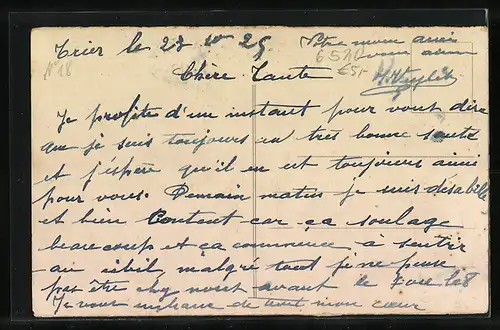 Trier le 23 10 25
Votre mon ami
N 18
6570
Chère Tante
Je profites d'un instant pour vout dire
que je suis toujours en tres bonne santé
et j'éspère qu'il en est toujours ainsi
pour vous. Demain matin je suis désabillé
et bien Content car ça soulage
beaucoup et ça commence à sentir
au cibil, malgré tout je ne pense
pas être chez nous avant le 7 ou le 8
Je vous embrasse de tout mon cœur